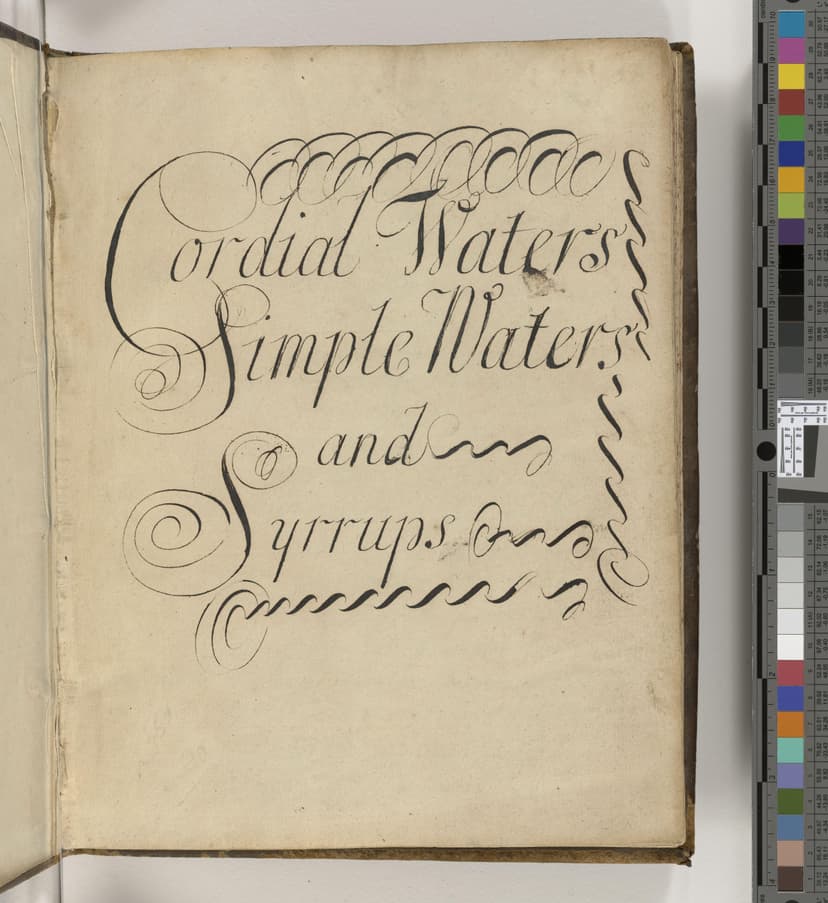 Cordial Waters
Simple Waters
and
Syrrups